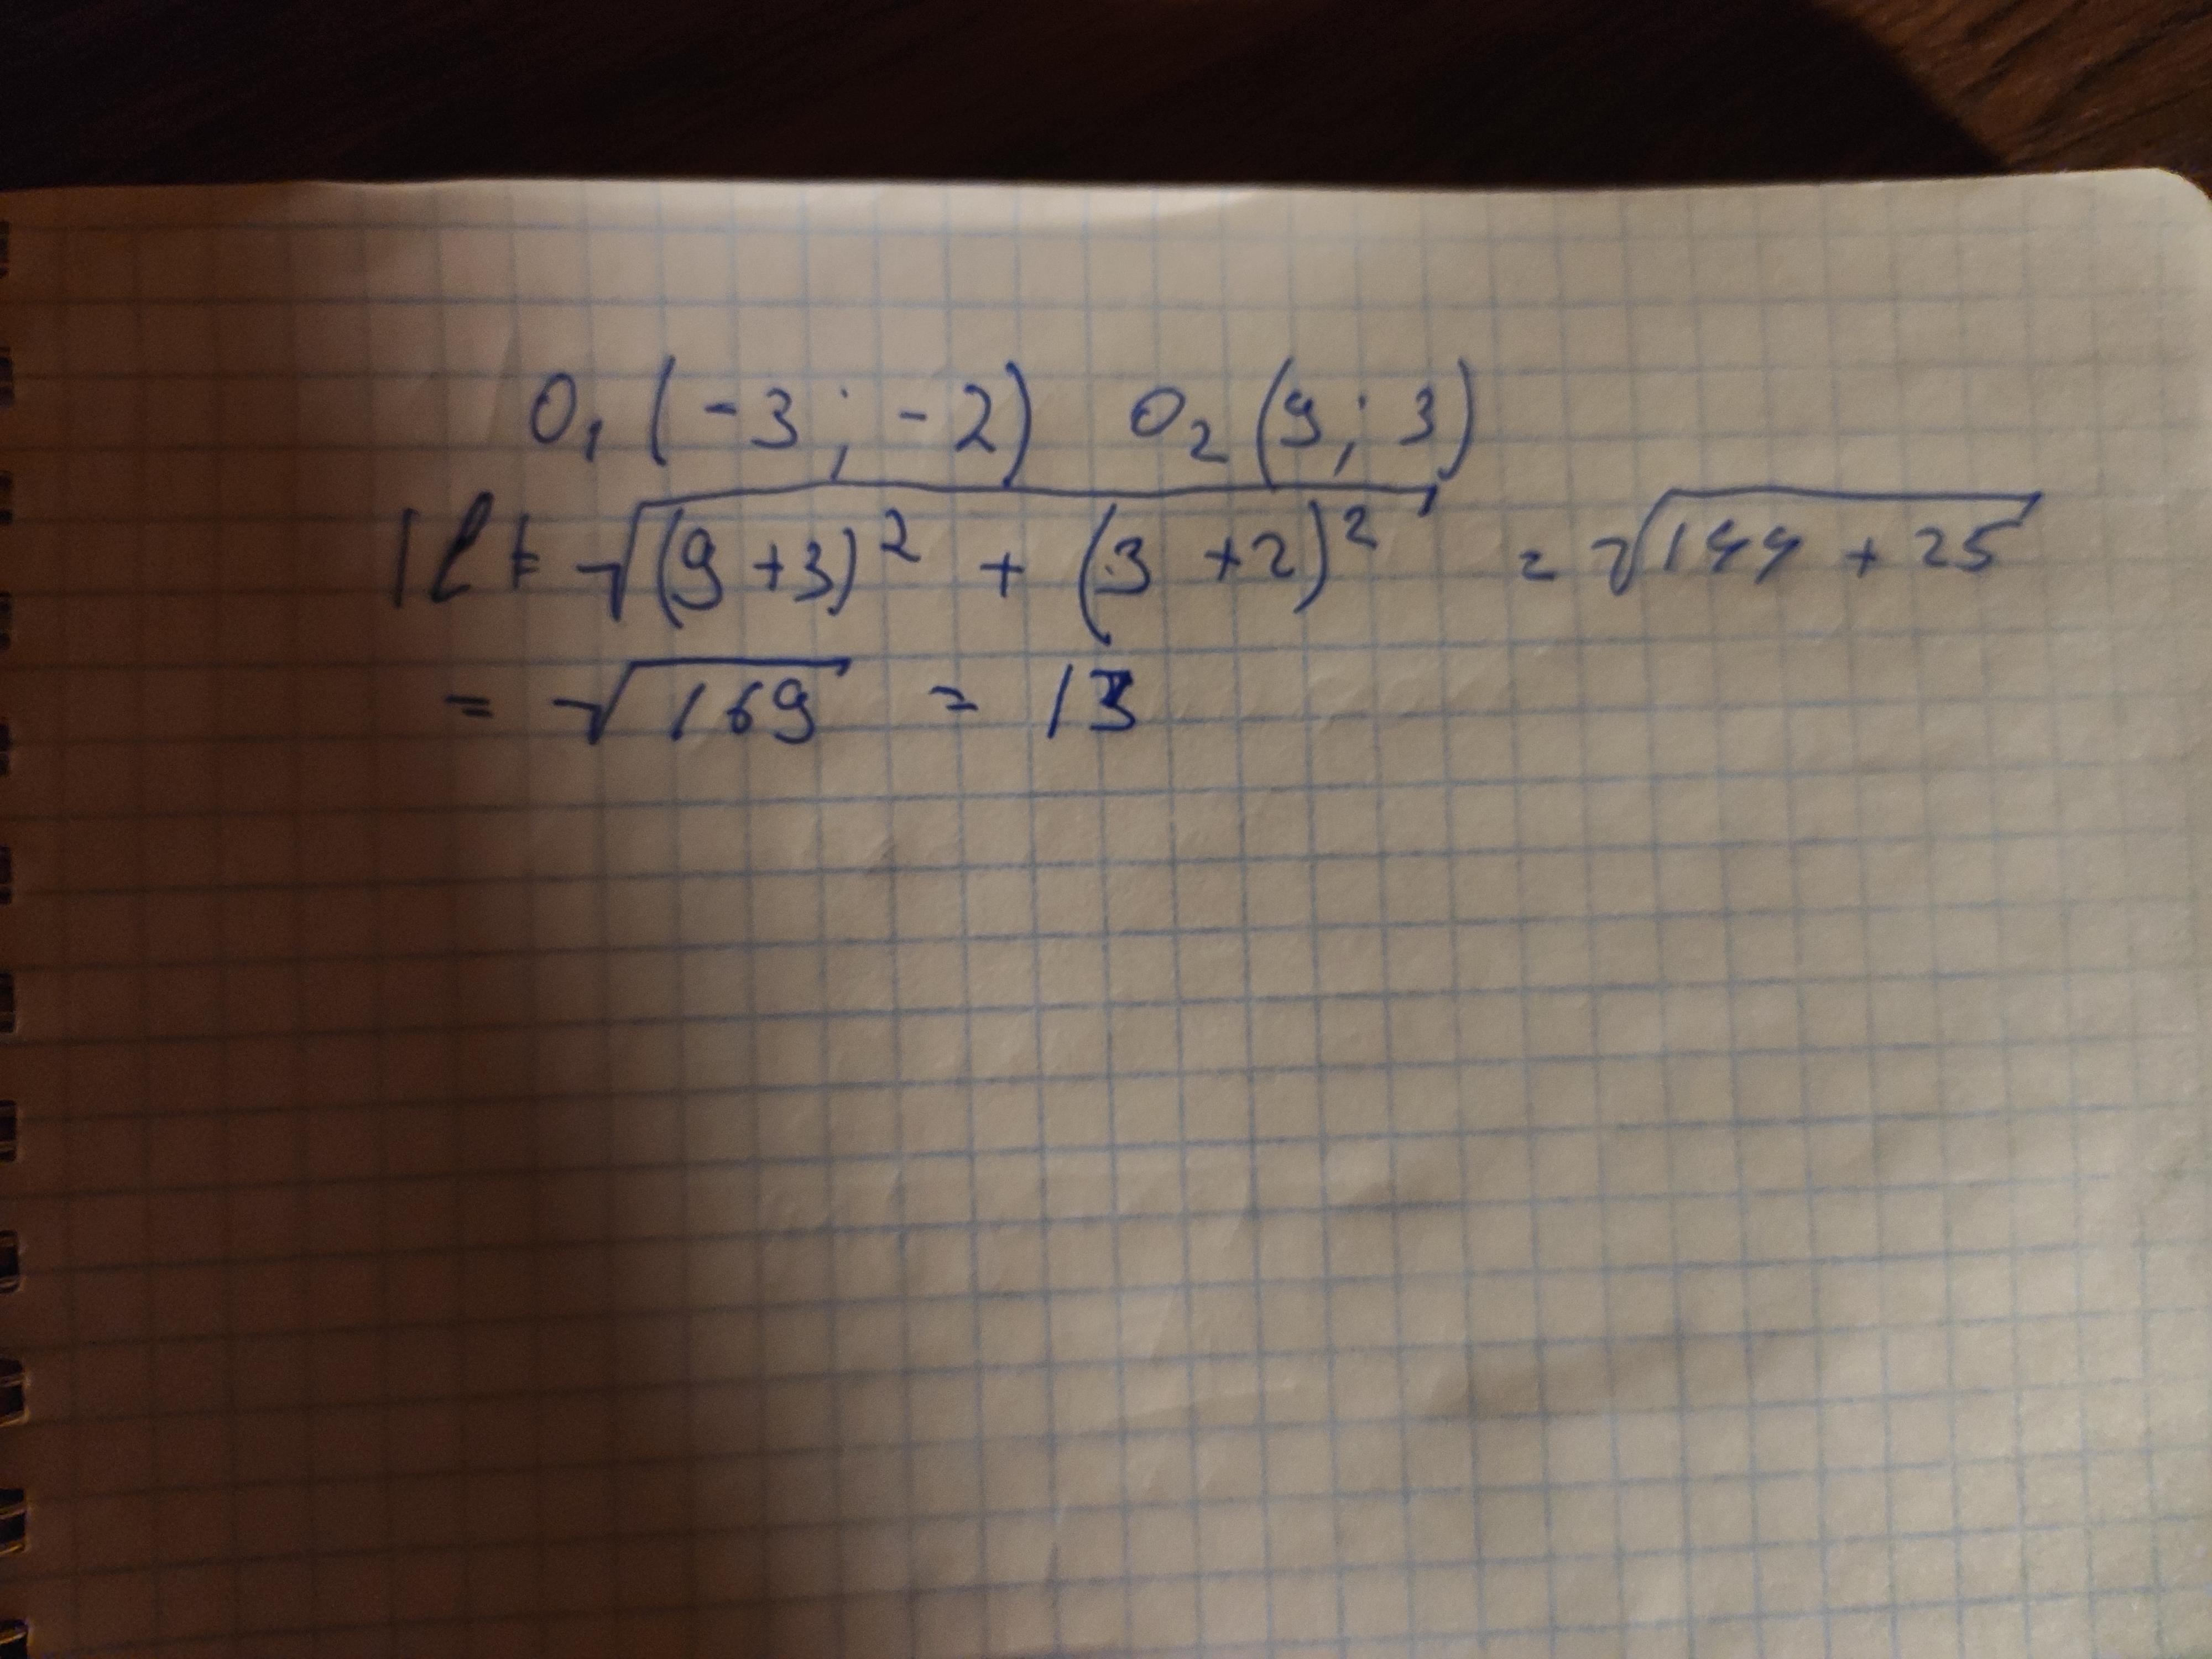 O₁ (-3; -2) O₂ (9; 3)
|l| = √((9+3)² + (3+2)²) = √(144 + 25)
= √169 = 13